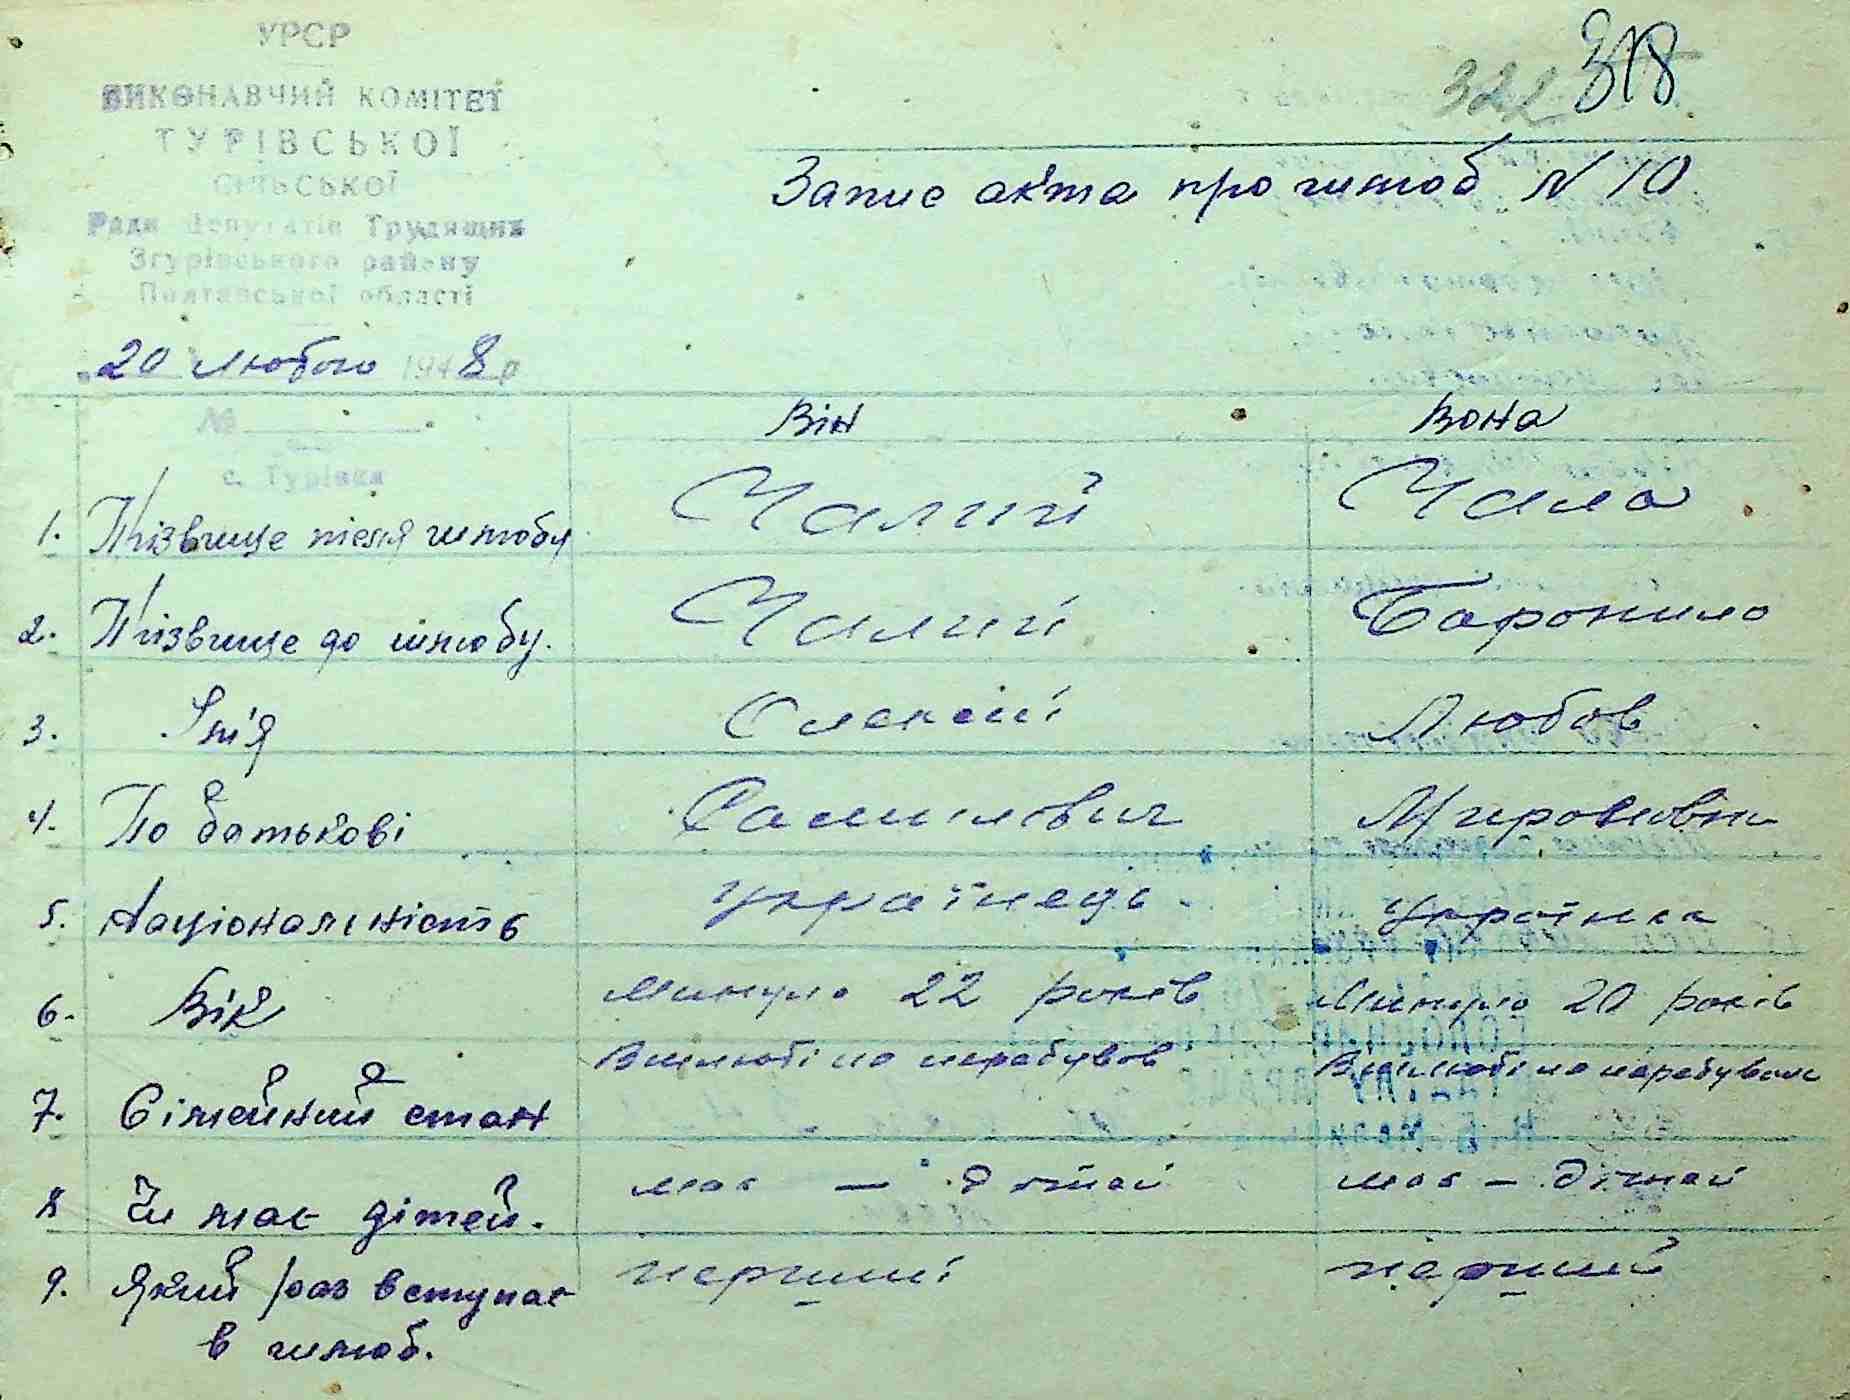 УРСР
ВИКОНАВЧИЙ КОМІТЕТ
ТУРІВСЬКОЇ
СІЛЬСЬКОЇ
Ради Депутатів Трудящих
Згурівського району
Полтавської області
20 лютого 1948 р
322 318
Запис акта про шлюб N 10
№
с. Турівка
Він Вона
1. Прізвище після шлюбу Чалий Чала
2. Прізвище до шлюбу. Чалий
3. Ім'я Олексій Любов
4. По батькові Самілович
5. Національність українець українка
6. Вік Минуло 22 років Минуло 20 років
7. Сімейний стан Вшлюбі не перебував Вшлюбі не перебувала
8 Чи має дітей. має — дітей має — дітей
9. Який раз вступає перший перший
в шлюб.